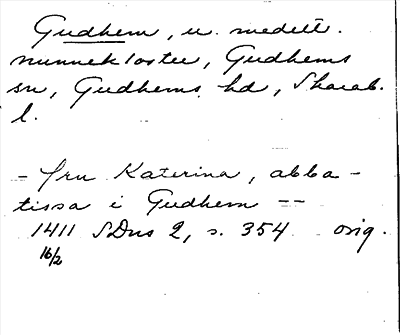 Gudhem, u. medelt.
nunnekloster, Gudhems
sn, Gudhems hd, Skarab.
l.
- fru Katerina, abba-
tissa i Gudhem --
1411 SDns 2, s. 354 orig.
16/2